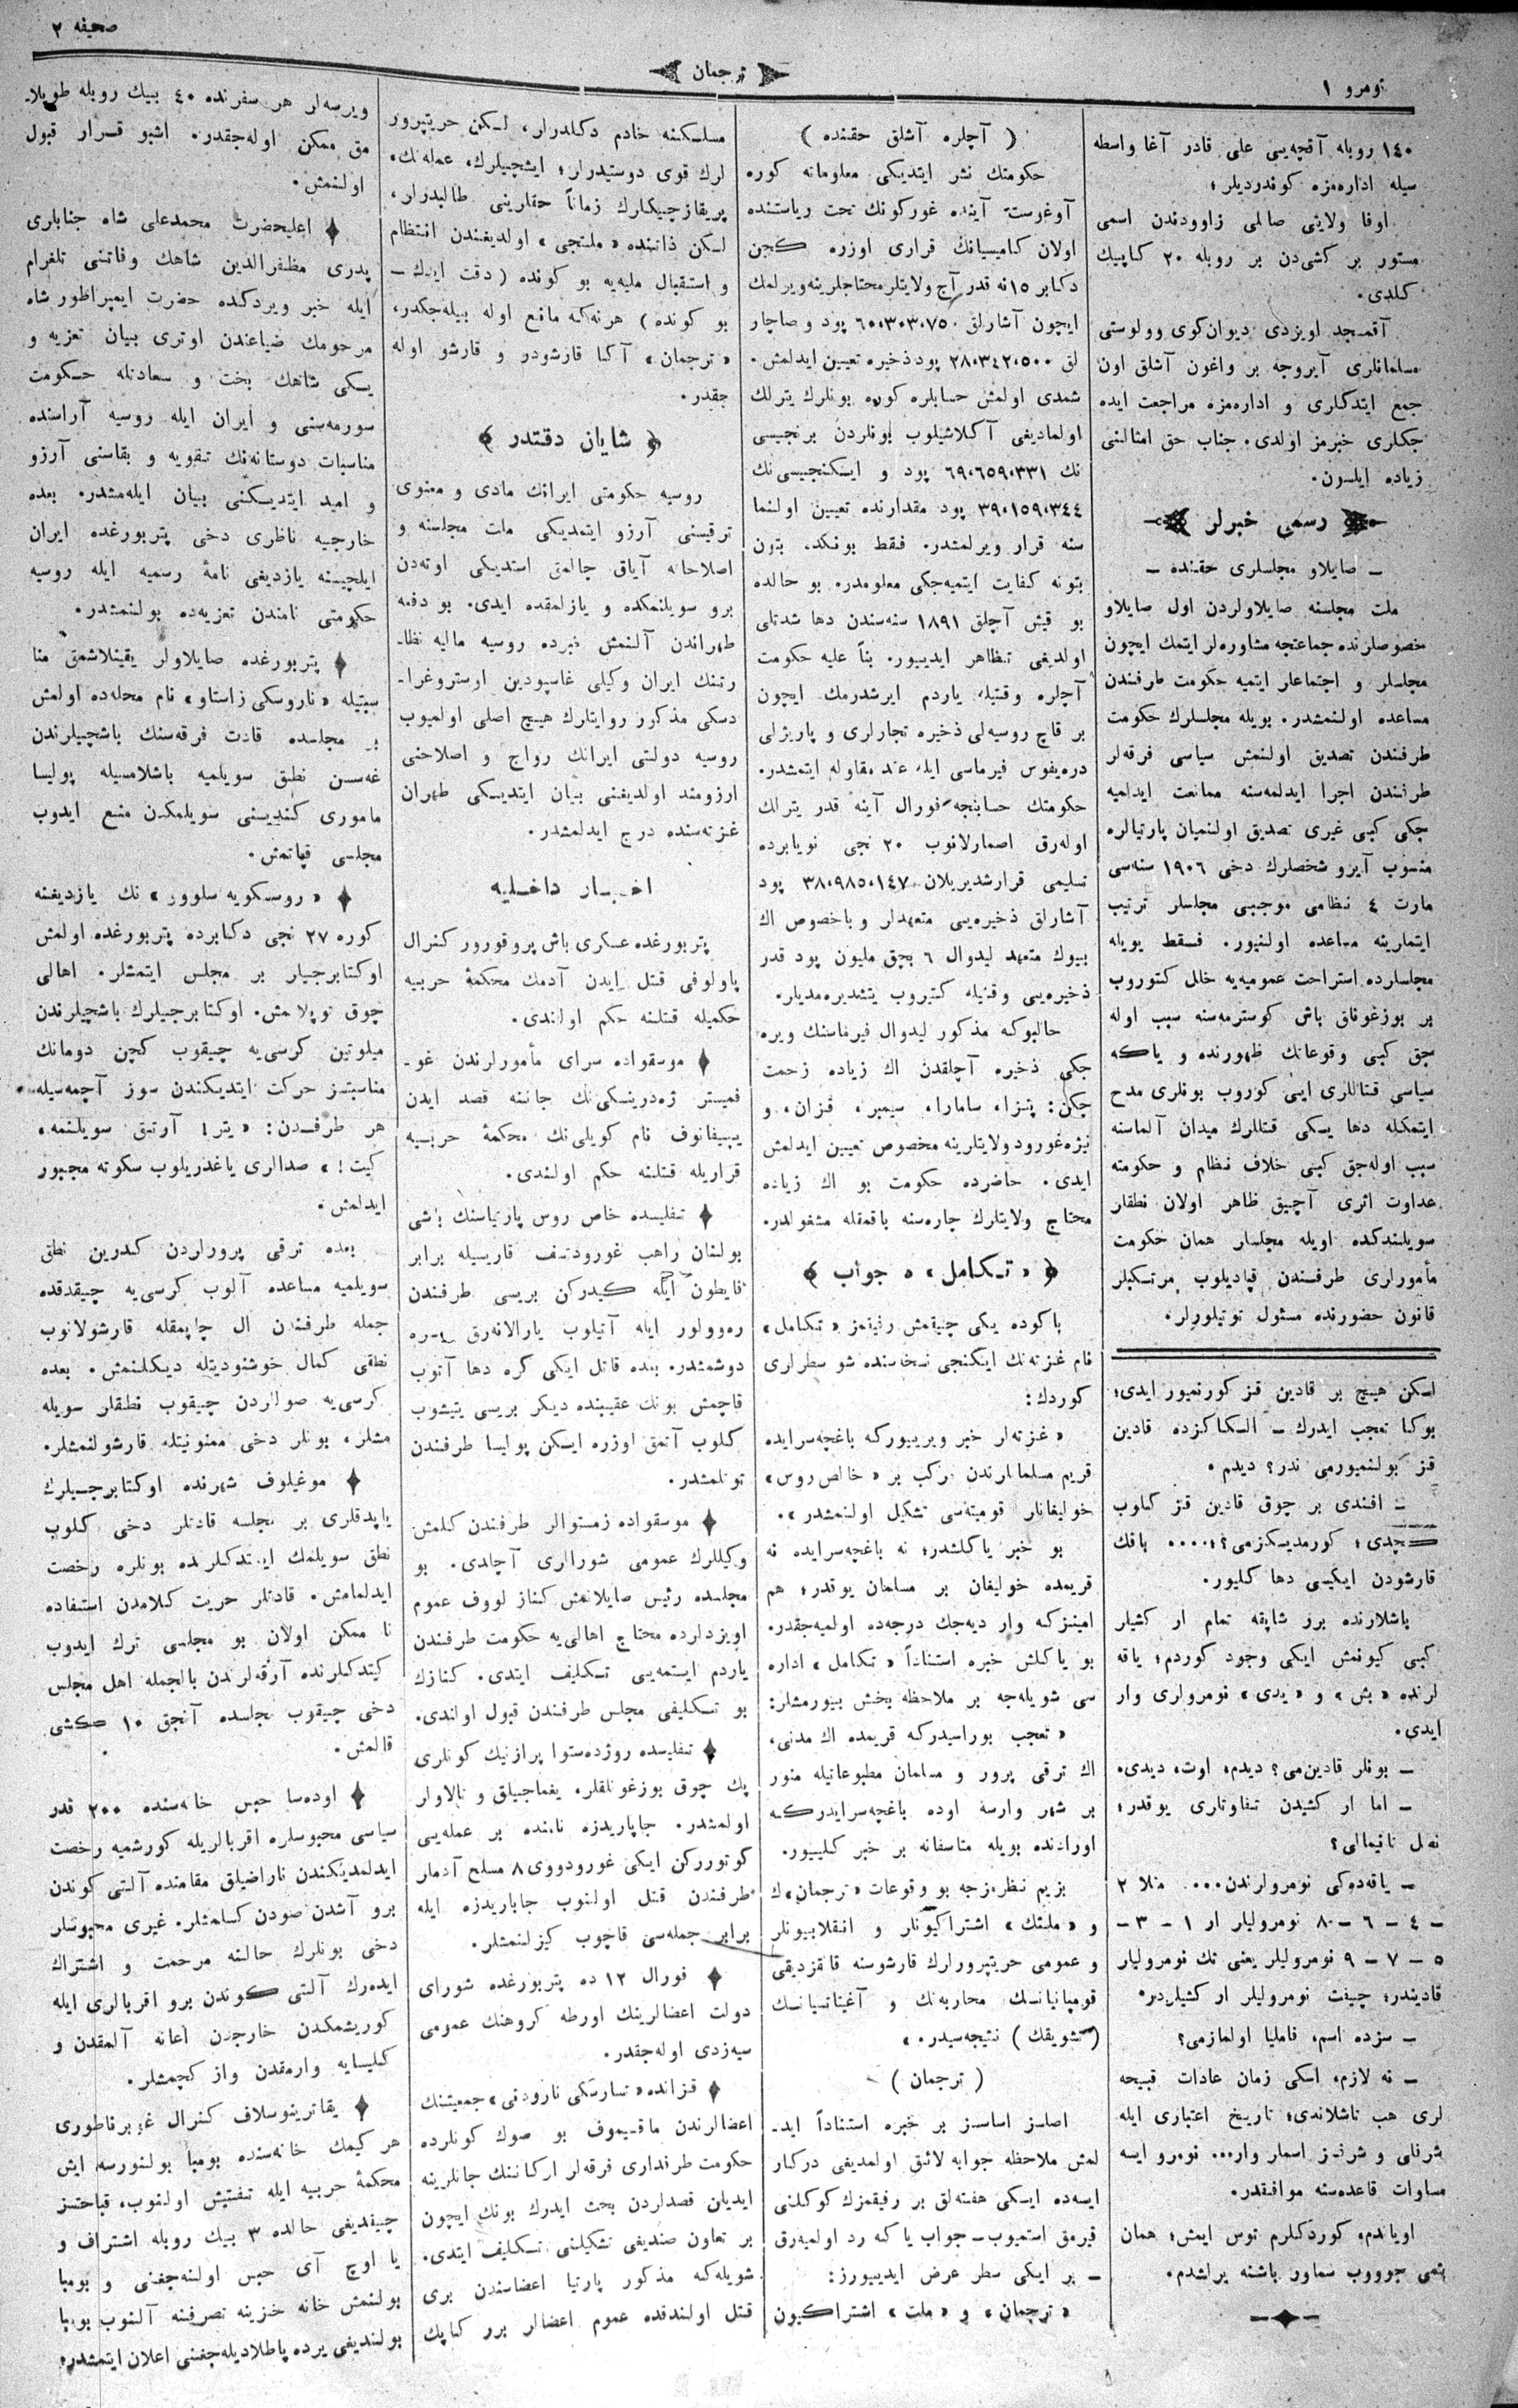 نومرو ۱
ترجمان
صحیفه ۲
۱۴۰ روبله آقچه‌یی علی قادر آغا واسطه
سیله اداره‌مزه کوندردیلر؛
اوفا ولایتی صالمی زاوودندن اسمی
مستور بر کشی‌دن بر روبله ۲۰ کاپیك
کلدی.
آقمجد اویزدی دیوان‌کوی وولوستی
مسلمانلری آیروجه بر واغون آشلق اون
جمع ایتدکلری و اداره‌مزه مراجعت ایده
جکلری خبرمز اولدی. جناب حق امثالنی
زیاده ایلسون.
رسمی خبرلر
ـ صایلاو مجلسلری حقنده ـ
ملت مجلسنه صایلاولردن اول صایلاو
خصوصلرنده جماعتجه مشاوره‌لر ایتمك ایچون
مجلسلر و اجتماعلر ایتمیه حکومت طرفندن
مساعده اولنمشدر. بویله مجلسلرك حکومت
طرفندن تصدیق اولنمش سیاسی فرقه‌لر
طرفندن اجرا ایدلمه‌سنه ممانعت ایدلمیه
جکی کبی غیری تصدیق اولنمیان پارتیالره
منسوب آیرو شخصلرك دخی ۱۹۰۶ سنه‌سی
مارت ۴ نظامی موجبی مجلسلر ترتیب
ایتمارینه مساعده اولنیور. فقط بویله
مجلسلرده استراحت عمومیه‌یه خلل کتوروب
بر بوزغونلق باش کوسترمه‌سنه سبب اوله
جق کبی وقوعاتك ظهورنده و یاکه
سیاسی قتاللری ایی کوروب بونلری مدح
ایتمکله دها یکی قتللرك میدان آلماسنه
سبب اوله‌جق کبی خلاف نظام و حکومته
عداوت اثری آچیق ظاهر اولان نطقلر
سویلندکده اویله مجلسلر همان حکومت
مأمورلری طرفندن قپادیلوب مرتکبلر
قانون حضورنده مسئول توتیلورلر.
ایکن هیچ بر قادین قز کورنمیور ایدی؛
بوکا تعجب ایدرك ـ الکاکزده قادین
قز بولنمیورمی ندر؟ دیدم.
ـ افندی بر چوق قادین قز کلوب
کچدی؛ کورمدیکزمی؟؛.... باقك
قارشودن ایکیسی دها کلیور.
باشلارنده برر شاپقه تمام ار کشیلر
کبی کیونمش ایکی وجود کوردم؛ یاقه
لرنده «بش» و «یدی» نومرولری وار
ایدی.
ـ بونلر قادین‌می؟ دیدم. اوت، دیدی.
ـ اما ار کشیدن تفاوتلری یوقدر؛
نه‌ل تانیمالی؟
ـ یاقه‌ده‌کی نومرولرندن... مثلا ۲
ـ ۴ ـ ۶ ـ ۸ نومرولیلر ار ۱ ـ ۳ ـ
۵ ـ ۷ ـ ۹ نومرولیلر یعنی تك نومرولیلر
قادیندر؛ چیفت نومرولیلر ار کشیلردر.
ـ سزده اسم، فاملیا اولمازمی؟
ـ نه لازم، اسکی زمان عادات قبیحه
لری هب تاشلاندی؛ تاریخ اعتباری ایله
شرفلی و شرفسز اسملر وار... نومرو ایسه
مساوات قاعده‌سنه موافقدر.
اویاندم. کوردکلرم توس ایمش؛ همان
یتمی جوووب سماور باشنه یرلشدم.
( آچلره آشلق حقنده )
حکومتك نشر ایتدیکی معلوماته کوره
آوغوست آینده غورکونك تحت ریاستنده
اولان کامیسیانك قراری اوزره کچن
دکابر ۱۵نه قدر آچ ولایتلر محتاجلرینه ویرلمك
ایچون آشارلق ۶۰،۳۰۳،۷۵۰ پود و صاچار
لق ۲۸،۳۴۲،۵۰۰ پود ذخیره تعیین ایدلمش.
شمدی اولمش حسابلره کوره بونلرك یترلك
اولمادیغی آکلاشیلوب بونلردن برنجیسی
نك ۶۹،۶۵۹،۳۳۱ پود و ایکنجیسی‌نك
۳۹،۱۵۹،۳۴۴ پود مقدارنده تعیین اولنما
سنه قرار ویرلمشدر. فقط بونکده بتون
بتونه کفایت ایتمیه‌جکی معلومدر. بو حالده
بو قیش آچلق ۱۸۹۱ سنه‌سندن دها شدتلی
اولدیغی تظاهر ایدییور. بناً علیه حکومت
آچلره وقتیله یاردم ایرشدرمك ایچون
بر قاچ روسیه‌لی ذخیره تجارلری و پاریژلی
دره‌یفوس فیرماسی ایله عقد مقاوله ایتمشدر.
حکومتك حسابنجه فورال آینه قدر یترلك
اوله‌رق اصمارلانوب ۲۰ نجی نویابرده
تسلیمی قرارشدیریلان ۳۸،۹۸۵،۱۴۷ پود
آشارلق ذخیره‌یی متعهدلر و باخصوص اك
بیوك متعهد لیدوال ۶ بچق ملیون پود قدر
ذخیره‌یی وقتیله کتیروب یتشدیره‌مدیلر.
حالبوکه مذکور لیدوال فیرماسنك ویره
جکی ذخیره آچلقدن اك زیاده زحمت
چکن: پنزا، سامارا، سیمبر، قزان، و
نیژه‌غورود ولایتلرینه مخصوص تعیین ایدلمش
ایدی. حاضرده حکومت بو اك زیاده
محتاج ولایتلرك چاره‌سنه باقمقله مشغولدر.
﴿ «تکامل»ه جواب ﴾
باکوده یکی چیقمش رفیقمز «تکامل»
نام غزته‌نك اینکنجی نسخاسنده شو سطرلری
کوردك:
«غزته‌لر خبر ویرییورکه باغچه‌سرایده
قریم مسلمانلرندن مرکب بر «خالص روس»
خولیغانلر قومیته‌سی تشکیل اولنمشدر».
بو خبر یاکلشدر؛ نه باغچه‌سرایده نه
قریمده خولیغان بر مسلمان یوقدر؛ هم
امینزکه وار دیه‌جك درجه‌ده اولمیه‌جقدر.
بو یاکلش خبره استناداً «تکامل» اداره
سی شویله‌جه بر ملاحظه بخش بیورمشلر:
«تعجب بوراسیدرکه قریمده اك مدنی،
اك ترقی پرور و مسلمان مطبوعاتیله منور
بر شهر وارسه اوده باغچه‌سرایدرکه
اورادنده بویله متاسفانه بر خبر کلییور.
بزیم نظره‌زجه بو وقوعات «ترجمان»ك
و «ملتك» اشتراکیونلر و انقلابیونلر
و عمومی حریتپرورلرك قارشوسنه قاقزدیقی
قومپانیانك محاربه‌نك و آغیتاتسیانك
(تشویقك) نتیجه‌سیدر.»
( ترجمان )
اصلسز اساسسز بر خبره استناداً ایدـ
لمش ملاحظه جوابه لائق اولمدیغی درکار
ایسه‌ده ایکی هفته‌لق بر رفیقمزك کوکلنی
قیرمق استمیوب ـ جواب یا که رد اولمیه‌رق
ـ بر ایکی سطر عرض ایدییورز:
«ترجمان» و «ملت» اشتراکیون
مسلکنه خادم دکلدرلر، لکن حریتپرور
لرك قوی دوستیدرلر؛ ایشچیلرك، عمله‌نك،
پریقازچیکلرك زماناً حقلرینی طالبدرلر،
لکن ذاتنده «ملتجی» اولدیغندن انتظام
و استقبال ملیه‌یه بو کونده (دقت ایدك ـ
بو کونده) هرنه‌که مانع اوله بیله‌جکدر،
«ترجمان» آکا قارشودر و قارشو اوله
جقدر.
﴿ شایان دقتدر ﴾
روسیه حکومتی ایرانك مادی و معنوی
ترقیسنی آرزو ایتمدیکی ملت مجلسنه و
اصلاحاته آیاق چالمق استدیکی اوته‌دن
برو سویلنمکده و یازلمقده ایدی. بو دفعه
طهراندن آلنمش خبرده روسیه مالیه نظاـ
رتنك ایران وکیلی غاسپودین اوستروغراـ
دسکی مذکور روایتلرك هیچ اصلی اولمیوب
روسیه دولتی ایرانك رواج و اصلاحنی
ارزومند اولدیغنی بیان ایتدیکی طهران
غزته‌سنده درج ایدلمشدر.
اخبار داخلیه
پتربورغده عسکری باش پروقورور کنرال
پاولوفی قتل ایدن آدمك محکمهٔ حربیه
حکمیله قتلنه حکم اولندی.
موسقواده سرای مأمورلرندن غوـ
فمیستر ژه‌درینسکی‌نك جاننه قصد ایدن
یپیفانوف نام کویلی‌نك محکمهٔ حربیه
قراریله قتلنه حکم اولندی.
تفلیسده خاص روس پارتیاسنك باشی
بولنان راهب غورودتسف قاریسیله برابر
فایطون ایله کیدرکن بریسی طرفندن
ره‌وولور ایله آتیلوب یارالانه‌رق یره
دوشمشدر. بعده قاتل ایکی کره دها آتوب
قاچمش بونك عقیبنده دیکر بریسی یتیشوب
کلوب آتمق اوزره ایکن پولیسا طرفندن
توتلمشدر.
موسقواده زمستوالر طرفندن کلمش
وکیللرك عمومی شورالری آچلدی. بو
مجلسده رئیس صایلانمش کناز لووف عموم
اویزدلرده محتاج اهالی‌یه حکومت طرفندن
یاردم ایستمه‌یی تکلیف ایتدی. کنازك
بو تکلیفی مجلس طرفندن قبول اولندی.
تفلیسده روژده‌ستوا پرازنیك کونلری
پك چوق بوزغونلقلر، یغماجیلق و تالاولر
اولمشدر. جاپاریدزه نامنده بر عمله‌یی
کوتوررکن ایکی غورودووی ۸ مسلح آدملر
طرفندن قتل اولنوب جاپاریدزه ایله
برابر جمله‌سی قاچوب کیزلنمشلر.
فورال ۱۲ ده پتربورغده شورای
دولت اعضالرینك اورطه کروهنك عمومی
سیه‌زدی اوله‌جقدر.
قزانده «تسارسکی نارودنی» جمعیتنك
اعضالرندن ماقیموف بو صوك کونلرده
حکومت طرفداری فرقه‌لر ارکاننك جانلرینه
ایدیلان قصدلردن بحث ایدرك بونك ایچون
بر تعاون صندیغی تشکیلنی تکلیف ایتدی.
شویله‌که مذکور پارتیا اعضاسندن بری
قتل اولندقده عموم اعضالر برر کاپك
ویرسه‌لر هر سفرنده ۴۰ بیك روبله طوپلاـ
مق ممکن اوله‌جقدر. اشبو قرار قبول
اولنمش.
اعلیحضرت محمدعلی شاه جنابلری
پدری مظفرالدین شاهك وفاتنی تلغرام
ایله خبر ویردکده حضرت ایمپراطور شاه
مرحومك ضیاعندن اوتری بیان تعزیه و
یکی شاهك بخت و سعادتله حکومت
سورمه‌سنی و ایران ایله روسیه آراسنده
مناسبات دوستانه‌نك تقویه و بقاسنی آرزو
و امید ایتدیکنی بیان ایله‌مشدر. بعده
خارجیه ناظری دخی پتربورغده ایران
ایلچیسنه یازدیغی نامهٔ رسمیه ایله روسیه
حکومتی نامندن تعزیه‌ده بولنمشدر.
پتربورغده صایلاولر یقینلاشمق منا
سبتیله «ناروسکی زاستاو» نام محله‌ده اولمش
بر مجلسده قادت فرقه‌سنك باشچیلرندن
غه‌سسن نطق سویلمیه باشلامسیله پولیسا
ماموری کندیسنی سویلمکدن منع ایدوب
مجلسی قپاتمش.
«روسکویه سلوور» نك یازدیغنه
کوره ۲۷ نجی دکابرده پتربورغده اولمش
اوکتابرجیلر بر مجلس ایتمشلر. اهالی
چوق توپلانمش. اوکتابرجیلرك باشچیلرندن
میلوتین کرسی‌یه چیقوب کچن دومانك
مناسبتسز حرکت ایتدیکندن سوز آچمه‌سیله
هر طرفدن: «یتر! آرتق سویلنمه،
کیت!» صدالری یاغدریلوب سکوته مجبور
ایدلمش.
بعده ترقی پرورلردن کدرین نطق
سویلمیه مساعده آلوب کرسی‌یه چیقدقده
جمله طرفندن ال چاپمقله قارشولانوب
نطقی کمال خوشنودیتله دیکلنمش. بعده
کرسی‌یه صولردن چیقوب نطقلر سویله
مشلر، بونلر دخی ممنونیتله قارشولنمشلر.
موغیلوف شهرنده اوکتابرجیلرك
یاپدقلری بر مجلسه قادتلر دخی کلوب
نطق سویلمك ایستدکلرنده بونلره رخصت
ایدلمامش. قادتلر حریت کلامدن استفاده
نا ممکن اولان بو مجلسی ترك ایدوب
کیتدکلرنده آرقه‌لرندن بالجمله اهل مجلس
دخی چیقوب مجلسده آنجق ۱۰ کشی
قالمش.
اوده‌سا حبس خانه‌سنده ۲۰۰ قدر
سیاسی محبوسلره اقربالریله کورشمیه رخصت
ایدلمدیکندن ناراضیلق مقامنده آلتی کوندن
برو آشدن صودن کسلمشلر. غیری محبوسلر
دخی بونلرك حالنه مرحمت و اشتراك
ایده‌رك آلتی کوندن برو اقربالری ایله
کوریشمکدن خارجدن اعانه آلمقدن و
کلیسایه وارمقدن واز کچمشلر.
یقاترینوسلاف کنرال غوبرناطوری
هر کیمك خانه‌سنده بومبا بولنورسه ایش
محکمهٔ حربیه ایله تفتیش اولنوب، قباحتسز
چیقدیغی حالده ۳ بیك روبله اشتراف و
یا اوچ آی حبس اولنه‌جغنی و بومبا
بولنمش خانه خزینه تصرفنه آلنوب بومبا
بولندیغی یرده پاطلادیله‌جغنی اعلان ایتمشدر.